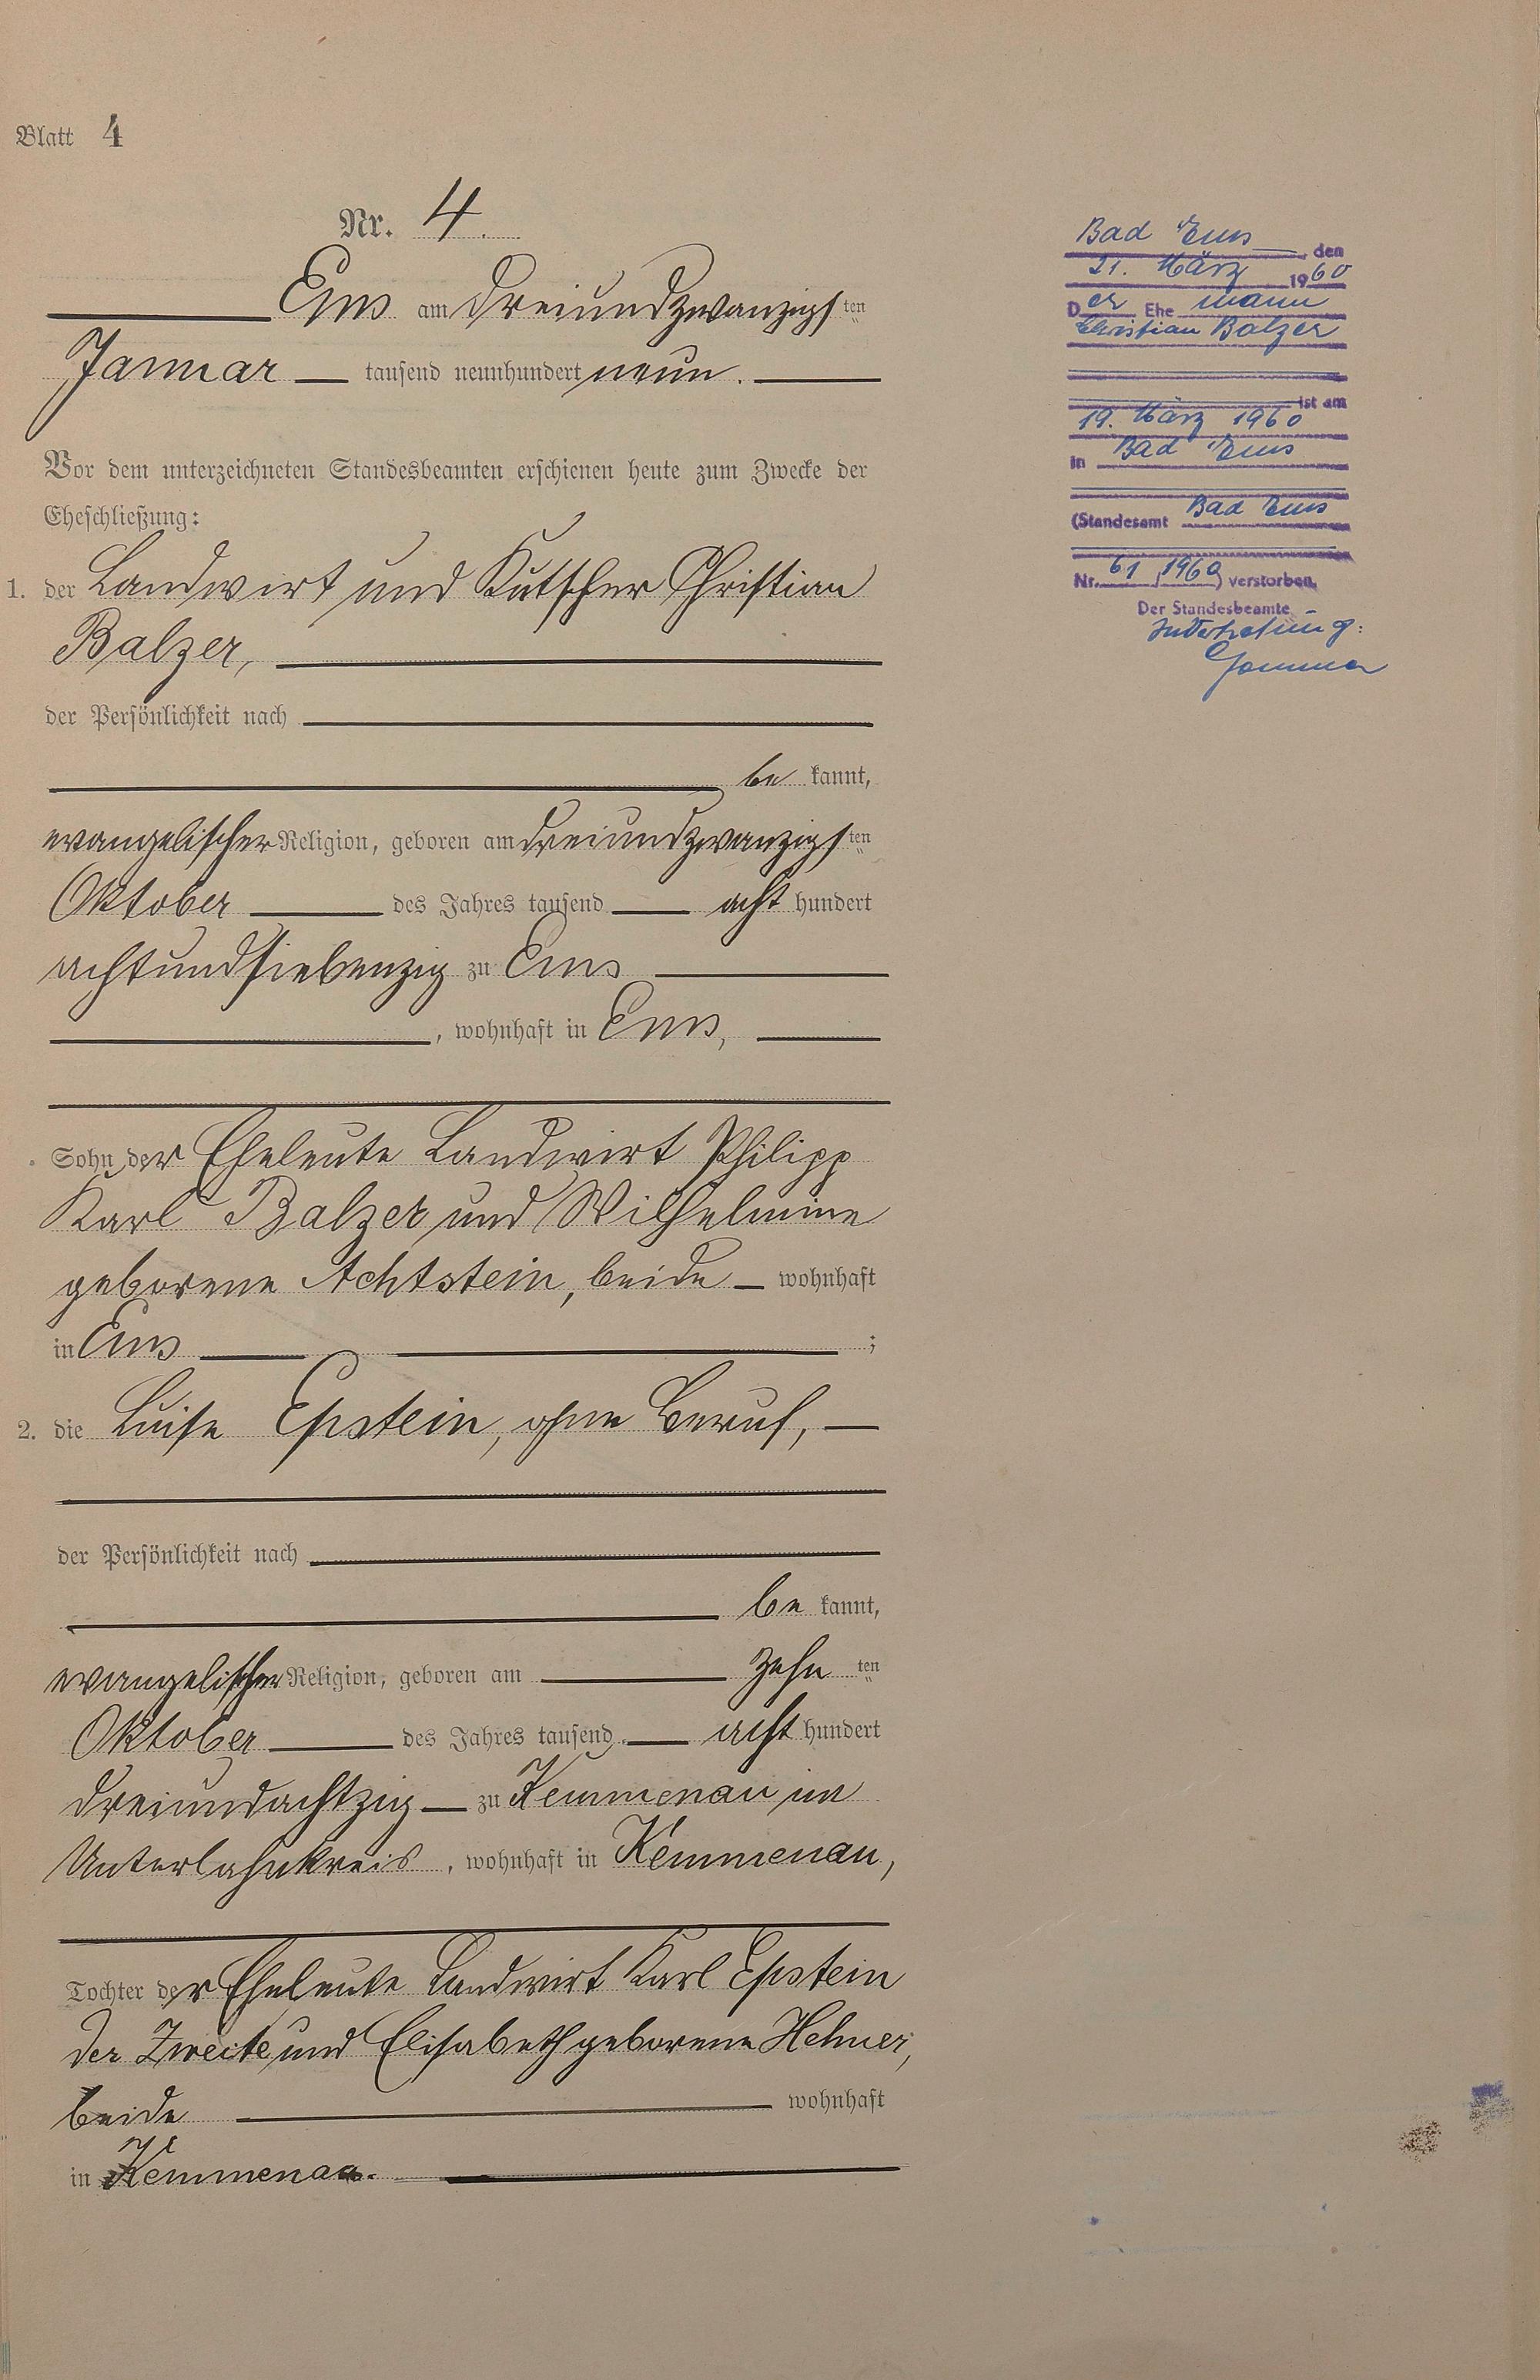 Blatt 4
Nr. 4.
Ems am dreiundzwanzigsten
Januar tausend neunhundert neun.
Vor dem unterzeichneten Standesbeamten erschienen heute zum Zwecke der
Eheschließung:
1. der Landwirt und Kutscher Christian
Balzer,
der Persönlichkeit nach
be kannt,
evangelischer Religion, geboren am dreiundzwanzigsten
Oktober des Jahres tausend acht hundert
achtundsiebenzig zu Ems
, wohnhaft in Ems,
Sohn der Eheleute Landwirt Philipp
Karl Balzer und Wilhelmine
geborene Achtstein, beide wohnhaft
in Ems ;
2. die Luise Epstein, ohne Beruf,
der Persönlichkeit nach
be kannt,
evangelischer Religion, geboren am zehn ten
Oktober des Jahres tausend acht hundert
dreiundachtzig zu Kemmenau im
Unterlahnkreis, wohnhaft in Kemmenau,
Tochter der Eheleute Landwirt Karl Epstein
der Zweite und Elisabeth geborene
beide wohnhaft
in Kemmenau.
Bad Ems, den
21. März 1960
Der Ehemann
Christian Balzer
ist am
19. März 1960
in Bad Ems
(Standesamt Bad Ems
Nr. 61/1960) verstorben.
Der Standesbeamte
In Vertretung: